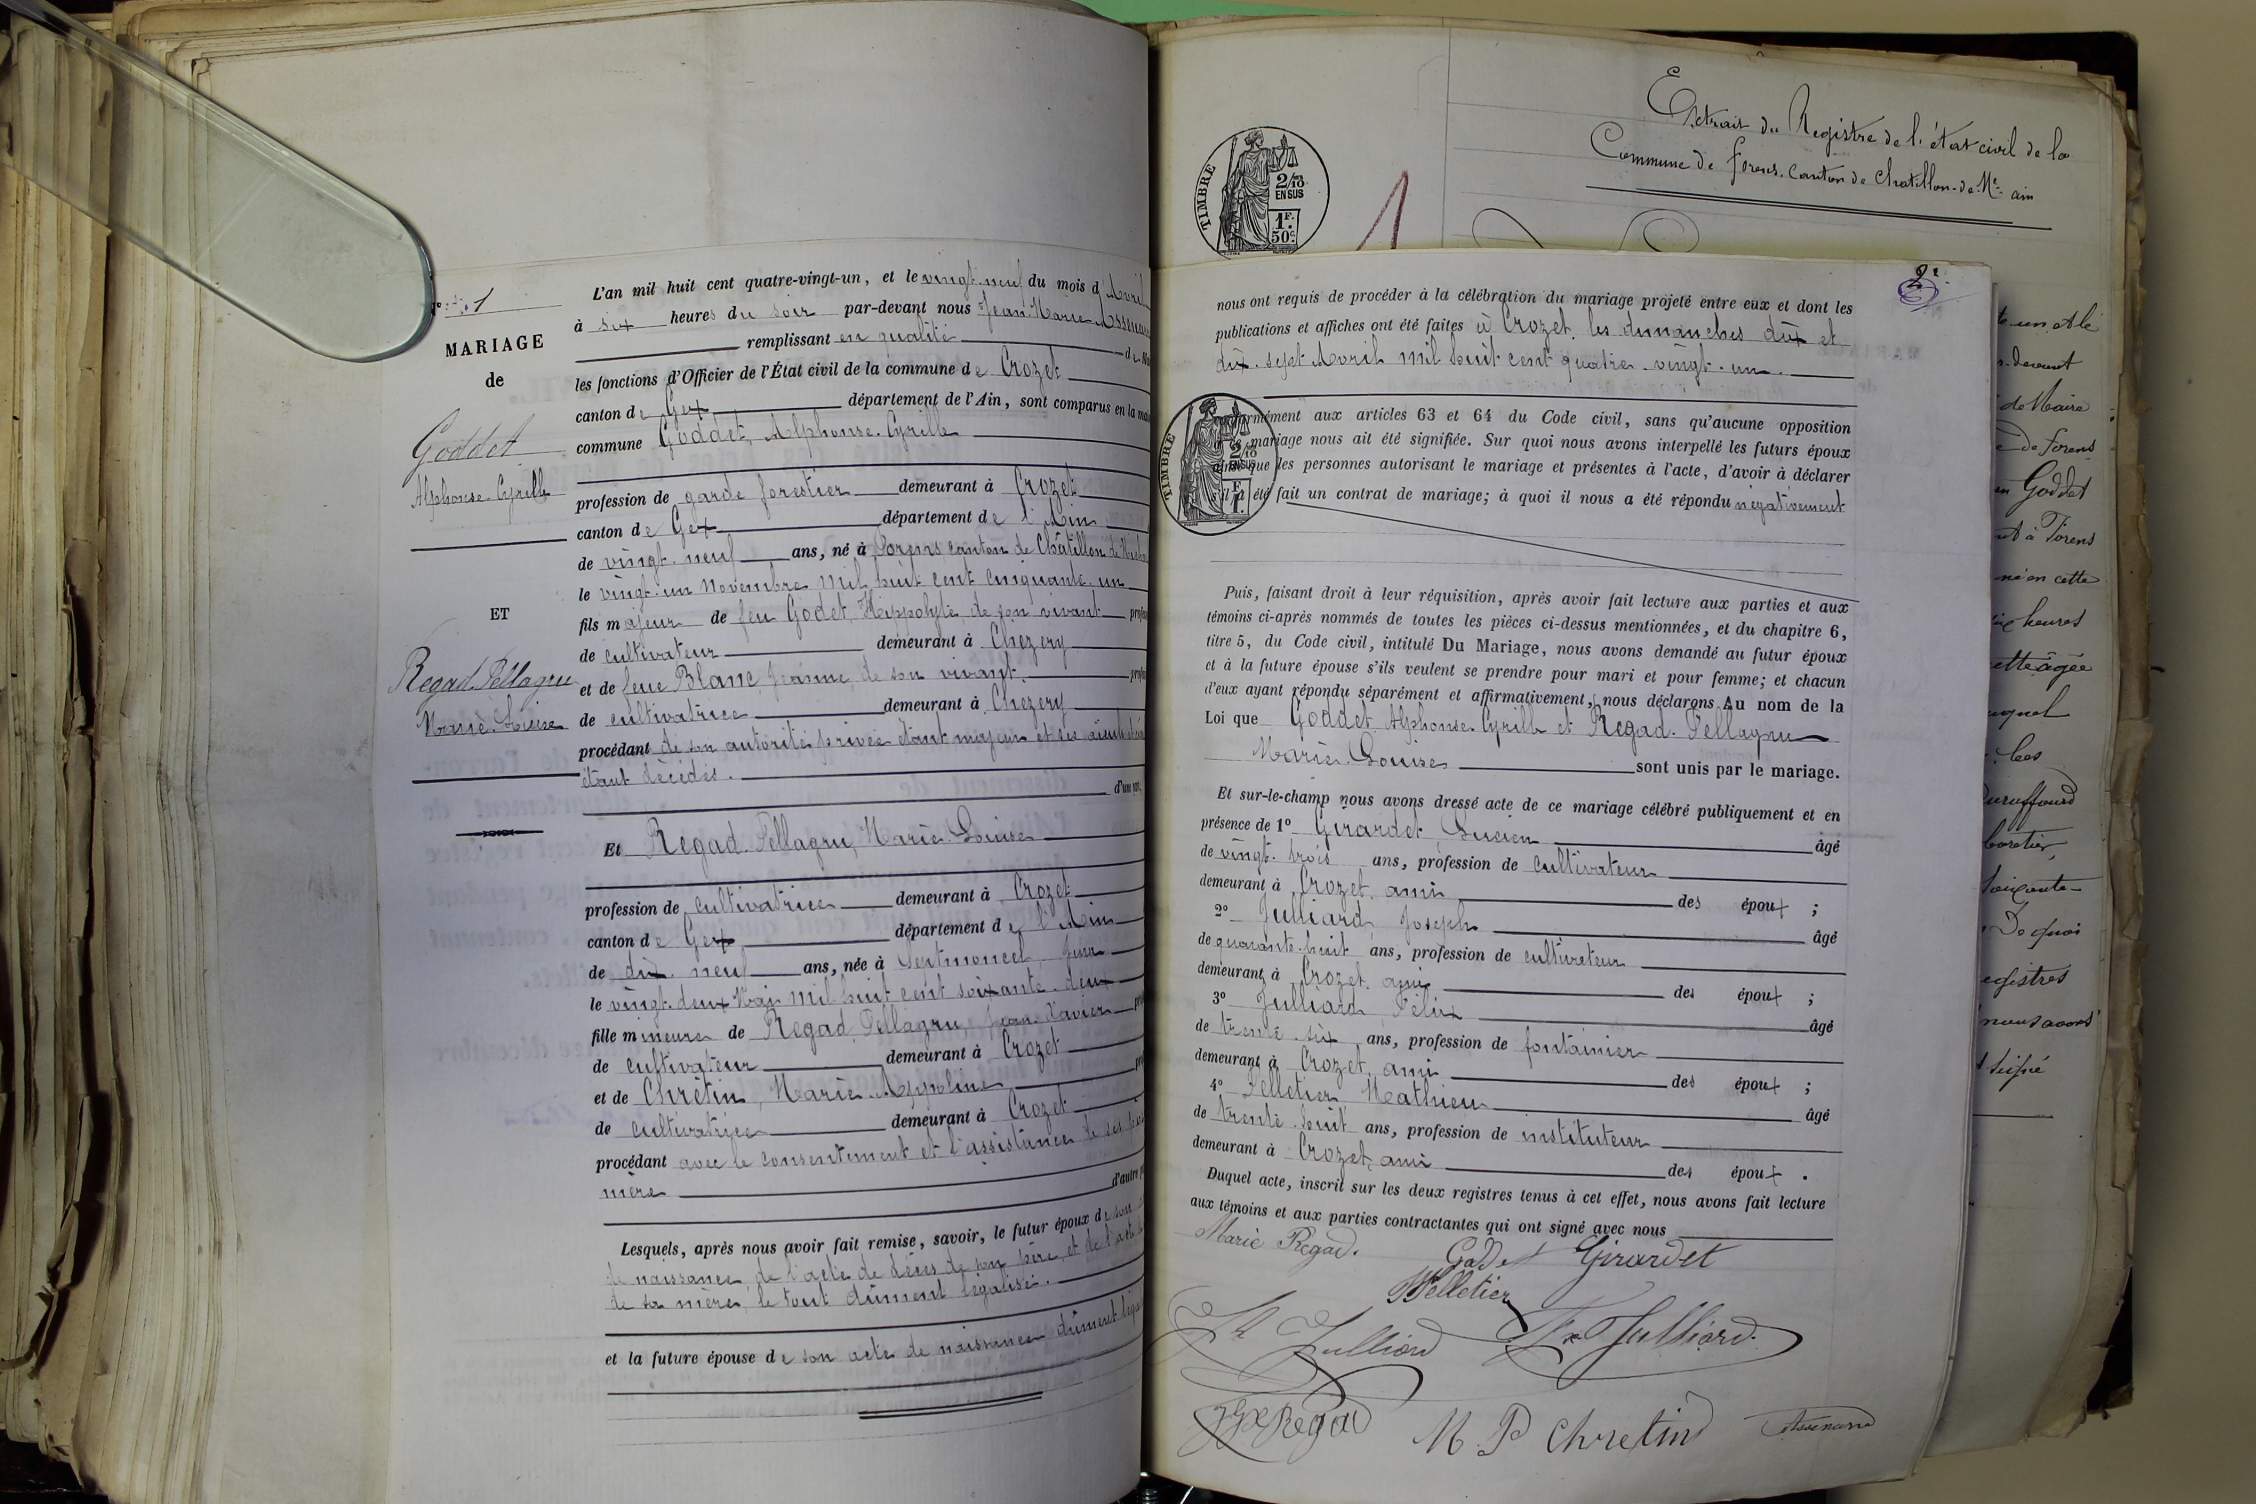 N° 1
MARIAGE
de
Goddet
Alphonse Cyrille
ET
Regad Pellagru
Marie-Louise
L'an mil huit cent quatre-vingt-un, et le vingt-neuf du mois d'Avril
à six heures du soir par-devant nous Jean-Marie
remplissant en qualité de
les fonctions d'Officier de l'État civil de la commune de Crozet
canton de Gex département de l'Ain, sont comparus en la
commune Goddet, Alphonse Cyrille
profession de garde forestier demeurant à Crozet
canton de Gex département de l'Ain
de vingt-neuf ans, né à Forens canton de Châtillon de
le vingt-un Novembre mil huit cent cinquante-un
fils majeur de feu Godet, Hippolyte de son vivant
de cultivateur demeurant à Chézery
et de feue Blanc Jeanne de son vivant
de cultivatrice demeurant à Chezery
procédant de son autorité privée étant majeur et ses aïeuls
étant décédés.
d'une
Et Regad Pellagru, Marie-Louise
profession de cultivatrice demeurant à Crozet
canton de Gex département de l'Ain
de dix-neuf ans, née à Septmoncel Jura
le vingt-deux Mai mil huit cent soixante-deux
fille mineure de Regad Pellagru, Jean-Xavier
de cultivateur demeurant à Crozet
et de Chrétin, Marie-Appoline
de cultivatrice demeurant à Crozet
procédant avec le consentement et l'assistance de ses
mère
d'autre
Lesquels, après nous avoir fait remise, savoir, le futur époux de son
de naissance, de l'acte de décès de son père, et de l'acte de
de sa mère, le tout dûment légalisé.
et la future épouse de son acte de naissance dûment
Extrait du Registre de l'état civil de la
Commune de Forens, canton de Chatillon-de-Me ain
TIMBRE
2/10
EN SUS
1F.
50c
1
2e
nous ont requis de procéder à la célébration du mariage projeté entre eux et dont les
publications et affiches ont été faites à Crozet, les dimanches dix et
dix-sept Avril mil huit cent quatre-vingt-un.
TIMBRE
2/10
EN SUS
1F.
conformément aux articles 63 et 64 du Code civil, sans qu'aucune opposition
à ce mariage nous ait été signifiée. Sur quoi nous avons interpellé les futurs époux
ainsi que les personnes autorisant le mariage et présentes à l'acte, d'avoir à déclarer
s'il a été fait un contrat de mariage; à quoi il nous a été répondu négativement
Puis, faisant droit à leur réquisition, après avoir fait lecture aux parties et aux
témoins ci-après nommés de toutes les pièces ci-dessus mentionnées, et du chapitre 6,
titre 5, du Code civil, intitulé Du Mariage, nous avons demandé au futur époux
et à la future épouse s'ils veulent se prendre pour mari et pour femme; et chacun
d'eux ayant répondu séparément et affirmativement, nous déclarons Au nom de la
Loi que Goddet Alphonse Cyrille et Regad-Pellagru
Marie-Louise sont unis par le mariage.
Et sur-le-champ nous avons dressé acte de ce mariage célébré publiquement et en
présence de 1° Girardet Lucien âgé
de vingt-trois ans, profession de cultivateur
demeurant à Crozet, ami des époux ;
2° Julliard Joseph âgé
de quarante-huit ans, profession de cultivateur
demeurant à Crozet, ami des époux ;
3° Julliard Félix âgé
de trente-six ans, profession de fontainier
demeurant à Crozet, ami des époux ;
4° Pelletier Mathieu âgé
de trente-huit ans, profession de instituteur
demeurant à Crozet, ami des époux .
Duquel acte, inscrit sur les deux registres tenus à cet effet, nous avons fait lecture
aux témoins et aux parties contractantes qui ont signé avec nous
Marie Regad. Godet Girardet
Pelletier
Julliard Fx Julliard.
Regad M P Chretin
un et le
devant
de Maire
de forens
Goddet
à Forens
né en cette
heures
âgée
lequel
les
Soixante
De quoi
registres
nous avons
signé